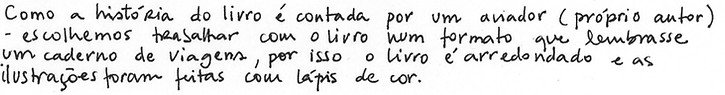 Como a história do livro é contada por um aviador (próprio autor)
- escolhemos trabalhar com o livro num formato que lembrasse
um caderno de viagens, por isso o livro é arredondado e as
ilustrações foram feitas com lápis de cor.